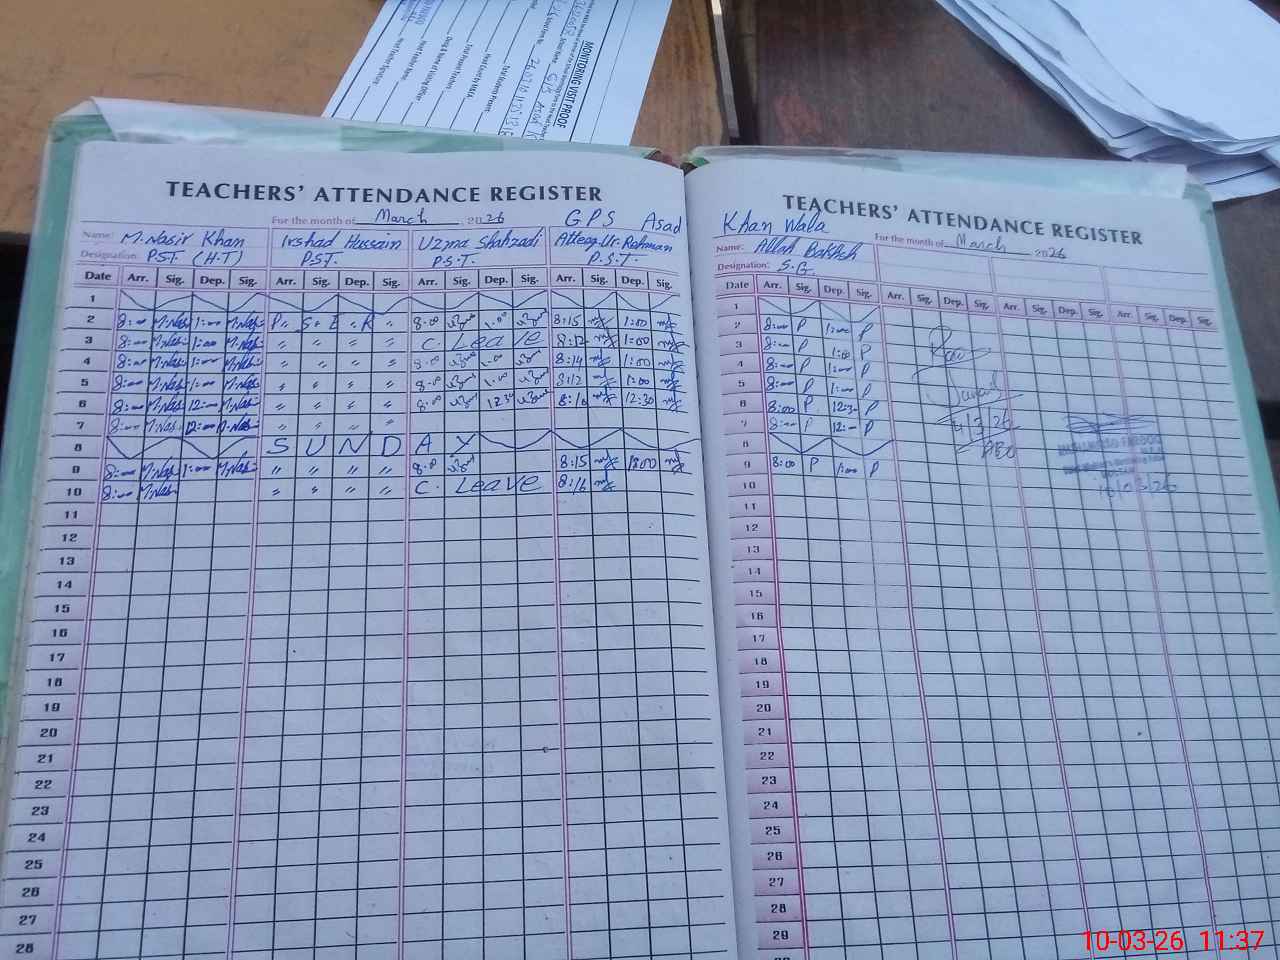 MONITORING VISIT PROOF
TEACHERS' ATTENDANCE REGISTER
For the month of March 2026 GPS Asad
Name: M. Nasir Khan Irshad Hussain Uzma Shahzadi Atteeq-Ur-Rehman
Designation: PST (H.T) P.S.T. P.S.T. P.S.T.
Date Arr. Sig. Dep. Sig. Arr. Sig. Dep. Sig. Arr. Sig. Dep. Sig. Arr. Sig. Dep. Sig.
1
2 8:00 M.Nasir 1:00 M.Nasir P.. S.. E.. R.. 8.00 1.00 8:15 1:00
3 8:00 M.Nasir 1:00 M.Nasir " " " " C. Leave 8:12 1:00
4 8:00 M.Nasir 1:00 M.Nasir " " " " 8.00 1.00 8:14 1:00
5 8:00 M.Nasir 1:00 M.Nasir " " " " 8.00 1.00 8:12 1:00
6 8:00 M.Nasir 12:00 M.Nasir " " " " 8.00 12.30 8:10 12:30
7 8:00 M.Nasir 12:00 M.Nasir " " " "
8 S U N D A Y
9 8:00 M.Nasir 1:00 M.Nasir " " " " 8.00 8:15 1:00
10 8:00 M.Nasir " " " " C. Leave 8:16
11
12
13
14
15
16
17
18
19
20
21
22
23
24
25
26
27
28
TEACHERS' ATTENDANCE REGISTER
Khan Wala
For the month of March 2026
Name: Allah Bakhsh
Designation: S.G
Date Arr. Sig. Dep. Sig. Arr. Sig. Dep. Sig. Arr. Sig. Dep. Sig. Arr. Sig. Dep. Sig.
1
2 8:00 P 1:00 P
3 8:00 P 1:00 P
4 8:00 P 1:00 P
5 8:00 P 1:00 P
6 8:00 P 12:30 P
7 8:00 P 12:00 P
4/3/26
AEO
8
9 8:00 P 1:00 P
10
10/03/26
11
12
13
14
15
16
17
18
19
20
21
22
23
24
25
26
27
28
29
10-03-26 11:37